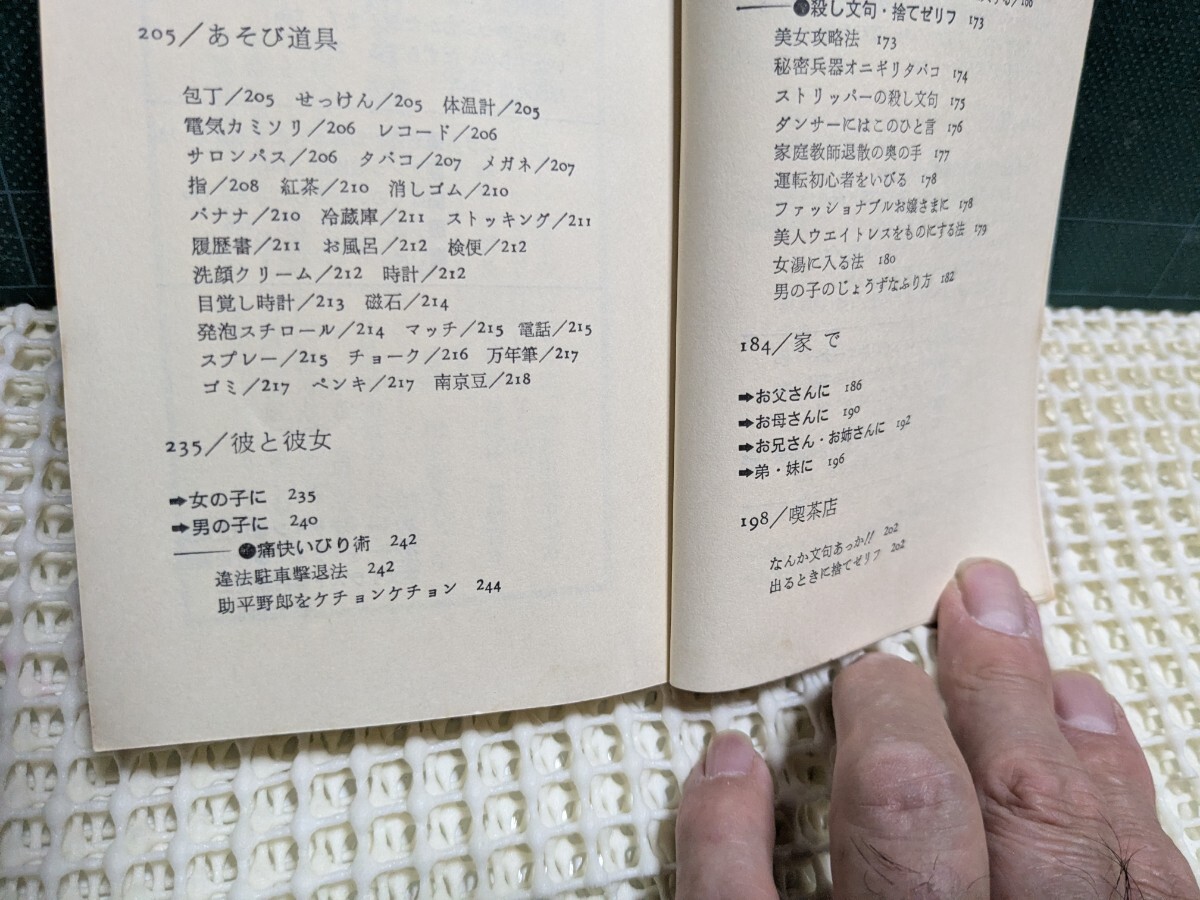 ●殺し文句・捨てゼリフ 173
美女攻略法 173
秘密兵器オニギリタバコ 174
ストリッパーの殺し文句 175
ダンサーにはこのひと言 176
家庭教師退散の奥の手 177
運転初心者をいびる 178
ファッショナブルお嬢さまに 178
美人ウエイトレスをものにする法 179
女湯に入る法 180
男の子のじょうずなふり方 182
184/家 で
➡お父さんに 186
➡お母さんに 190
➡お兄さん・お姉さんに 192
➡弟・妹に 196
198/喫茶店
なんか文句あっか!! 202
出るときに捨てゼリフ 202
205/あそび道具
包丁/205 せっけん/205 体温計/205
電気カミソリ/206 レコード/206
サロンパス/206 タバコ/207 メガネ/207
指/208 紅茶/210 消しゴム/210
バナナ/210 冷蔵庫/211 ストッキング/211
履歴書/211 お風呂/212 検便/212
洗顔クリーム/212 時計/212
目覚し時計/213 磁石/214
発泡スチロール/214 マッチ/215 電話/215
スプレー/215 チョーク/216 万年筆/217
ゴミ/217 ペンキ/217 南京豆/218
235/彼と彼女
➡女の子に 235
➡男の子に 240
●痛快いびり術 242
違法駐車撃退法 242
助平野郎をケチョンケチョン 244